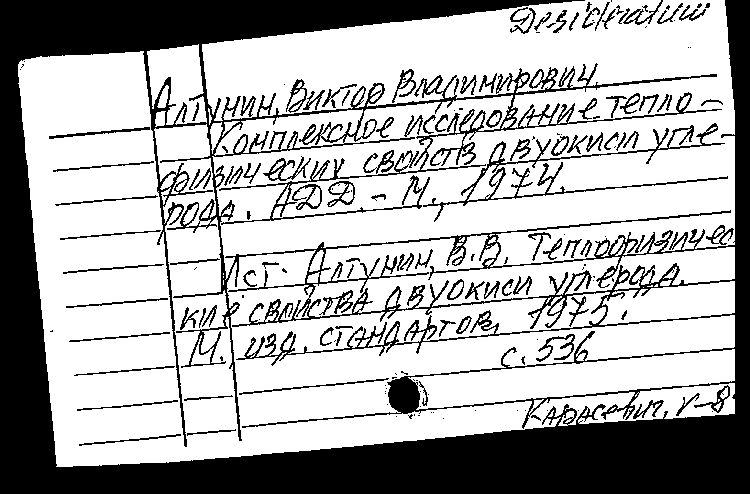 Desideratum
Алтунин, Виктор Владимирович.
Комплексное исследование тепло-
физических свойств двуокиси угле-
рода. АДД. - М., 1974.
Ист. Алтунин, В.В. Теплофизичес
кие свойства двуокиси углерода.
М., изд. стандартов, 1975.
с. 536
Карасевич, V-8